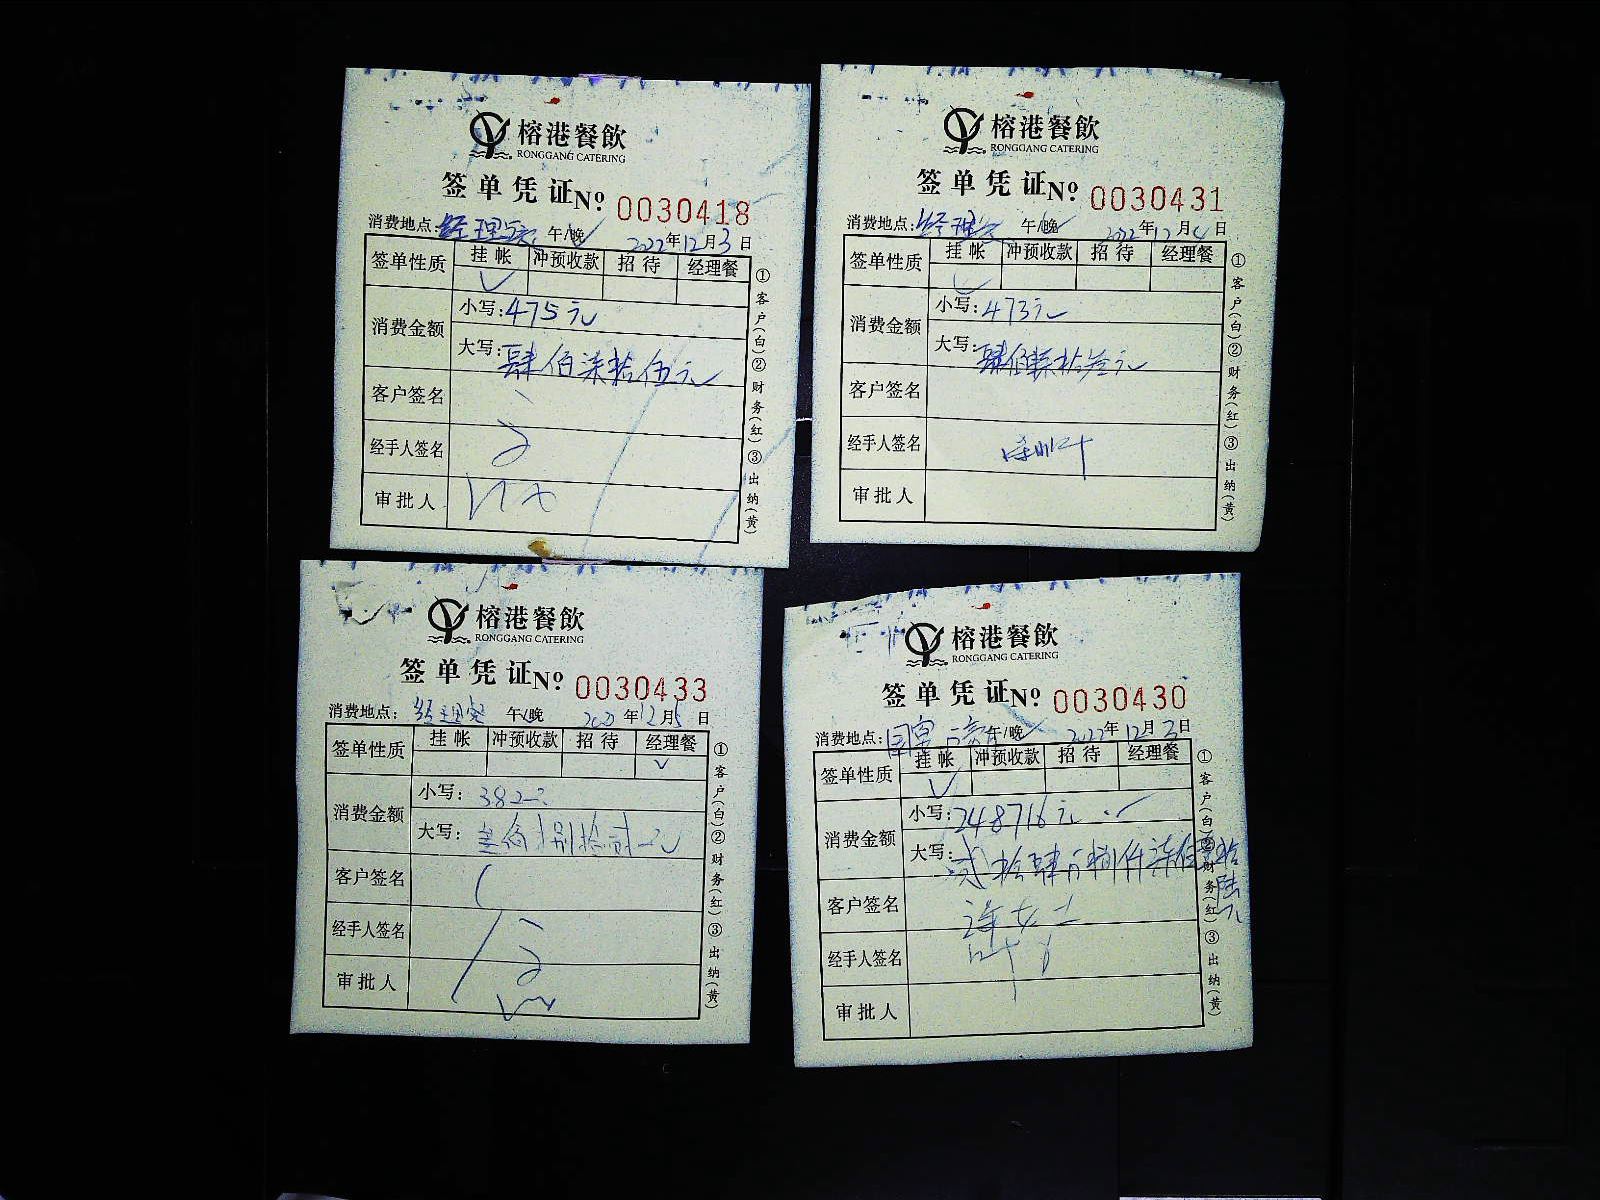 榕港餐飲
RONGGANG CATERING
签单凭证 Nº 0030418
消费地点: 经理室 午/晚 2022年12月3日
签单性质 挂帐 冲预收款 招待 经理餐
消费金额 小写: 475元
大写: 肆佰柒拾伍元
客户签名
经手人签名
审批人
①客户(白)②财务(红)③出纳(黄)
榕港餐飲
RONGGANG CATERING
签单凭证 Nº 0030431
消费地点: 经理室 午/晚 2022年12月4日
签单性质 挂帐 冲预收款 招待 经理餐
消费金额 小写: 473元
大写: 肆佰柒拾叁元
客户签名
经手人签名
审批人
①客户(白)②财务(红)③出纳(黄)
榕港餐飲
RONGGANG CATERING
签单凭证 Nº 0030433
消费地点: 经理室 午/晚 2022年12月5日
签单性质 挂帐 冲预收款 招待 经理餐
消费金额 小写: 382元
大写: 叁佰捌拾贰元
客户签名
经手人签名
审批人
①客户(白)②财务(红)③出纳(黄)
榕港餐飲
RONGGANG CATERING
签单凭证 Nº 0030430
消费地点: 午/晚 2022年12月3日
签单性质 挂帐 冲预收款 招待 经理餐
消费金额 小写: 248716元
大写: 贰拾肆万捌仟柒佰壹拾陆元
客户签名 女士
经手人签名 叶
审批人
①客户(白)②财务(红)③出纳(黄)